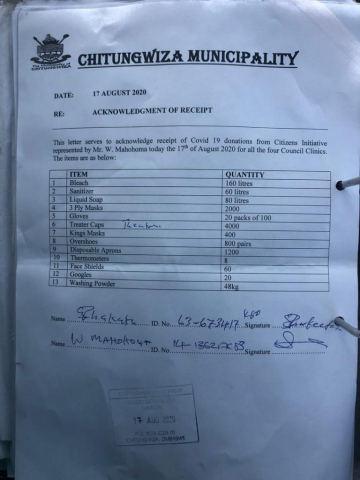 CHITUNGWIZA MUNICIPALITY
DATE: 17 AUGUST 2020
RE: ACKNOWLEDGMENT OF RECEIPT
This letter serves to acknowledge receipt of Covid 19 donations from Citizens Initiative
represented by Mr. W. Mahohoma today the 17th of August 2020 for all the four Council Clinics.
The items are as below:
ITEM QUANTITY
1 Bleach 160 litres
2 Sanitizer 60 litres
3 Liquid Soap 80 litres
4 3 Ply Masks 2000
5 Gloves 20 packs of 100
6 Treater Caps 4000
7 Kings Masks 400
8 Overshoes 800 pairs
9 Disposable Aprons 1200
10 Thermometers 8
11 Face Shields 60
12 Googles 20
13 Washing Powder 48kg
Name ID. No. Signature
Name W MAHOHOMA ID. No. Signature
17 AUG 2020